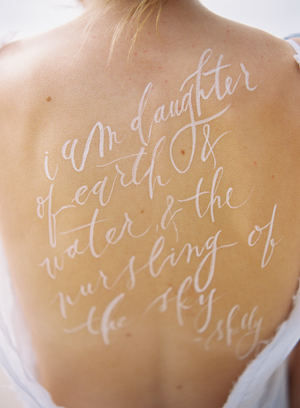 i am daughter
of earth &
water, & the
nursling of
the sky